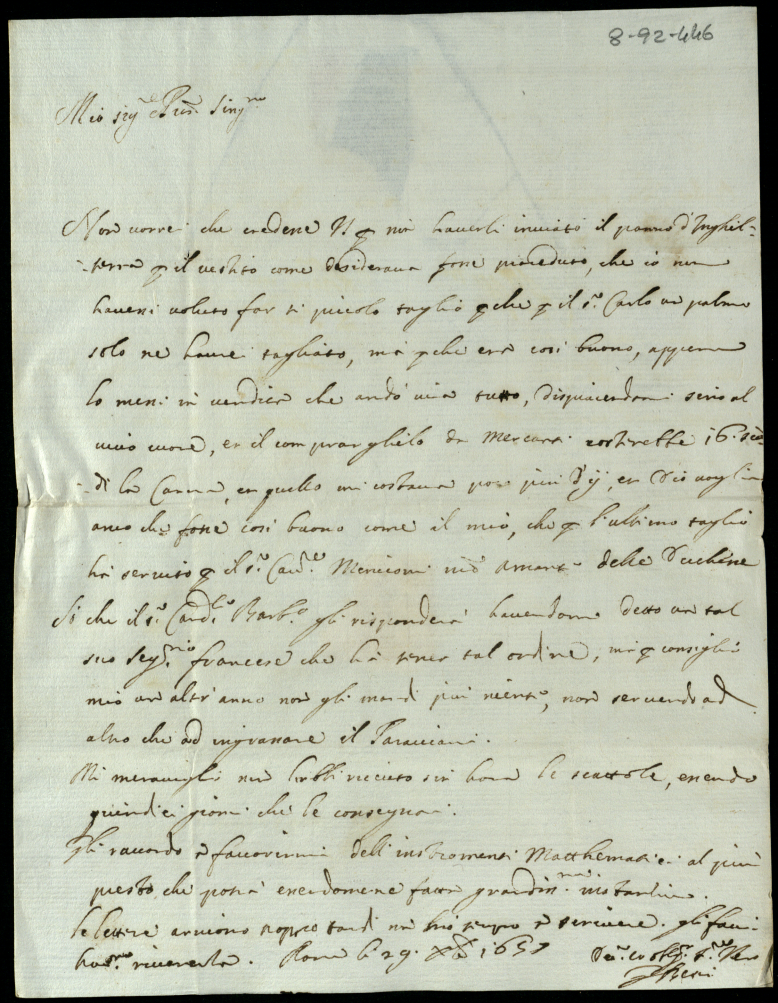 8-92-446
Mio sig.re e Pne Sing.mo
Non vorrei che credesse V.S. p non haverli inviato il panno d'Inghil=
=terra p il vestito come desiderava fosse proceduto, che io non
havessi voluto far si piccolo taglio pche p il S.r Carlo un palmo
solo ne havrei tagliato, ma pche era cosi buono, appena
lo messi in vendita che andò via tutto, dispiacendomi sino al
vivo cuore, et il comprarglielo da Mercanti costarebbe 16 scu=
=di la Canna, et quello mi costava poco più d'ij, et Dio voglia
anco che fosse cosi buono come il mio, che p l'ultimo taglio
hà servito p il S.r Card.le delle
Si che il S.r Card.le Barb.o gli risponderà havendomi detto un tal
suo Seg.rio francese che hà tener tal ordine, mà p consiglio
mio un altr'anno non gli mandi più niente, non servendo ad
altro che ad ingrassare il
Mi meraviglio non habbi ricevuto sin hora le scattole, essendo
quindici giorni che le consegnai.
Gli raccordo à favorirmi dell'instromenti Matthematici al più
presto che potrà essendomene fatta grandiss.ma instantia.
le lettere arrivono troppo tardi nè hò tempo à scrivere. gli facci
riverenza. Roma li 29 Xbre 1657